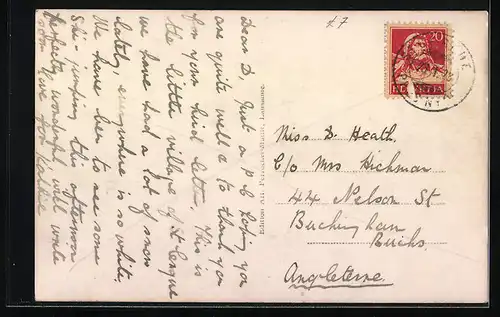 K7
20
HELVETIA
Dear D. Just a p.c. letting you
are quite well & to thank you
for your kind letter. This is
the little village of St Cergue
we have had a lot of snow
lately, everywhere is so white,
We have been to see some
Ski-jumping this afternoon
perfectly wonderful, will write
soon love from
Edition Art. Perrochet-Matile, Lausanne.
Miss D. Heath.
C/o Mrs Hickman
44 Nelson St
Buckingham
Bucks.
Angleterre